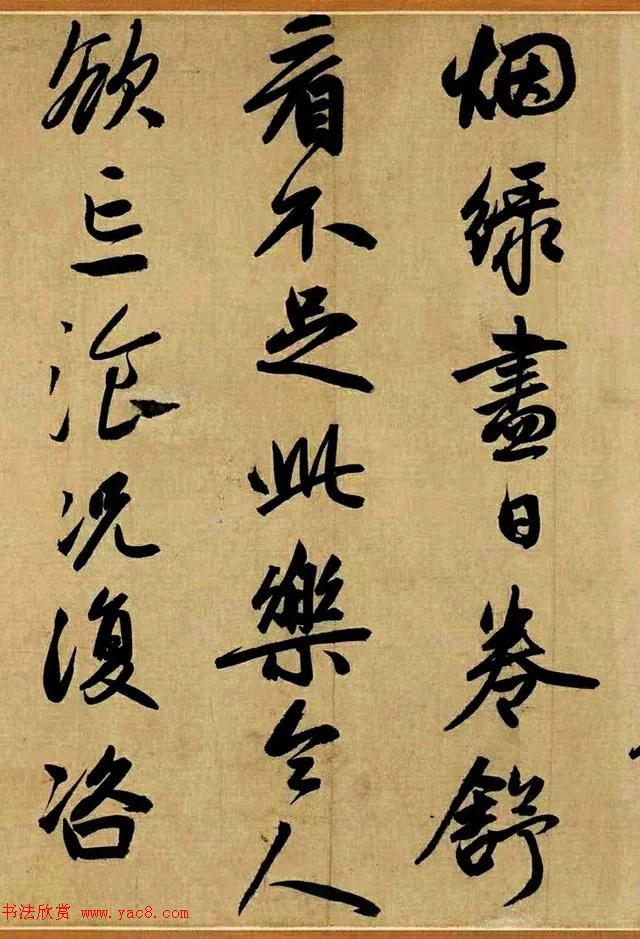 烟緑盡日卷舒
看不足此樂令人
欲忘湌况復咨
书法欣赏 www.yac8.com